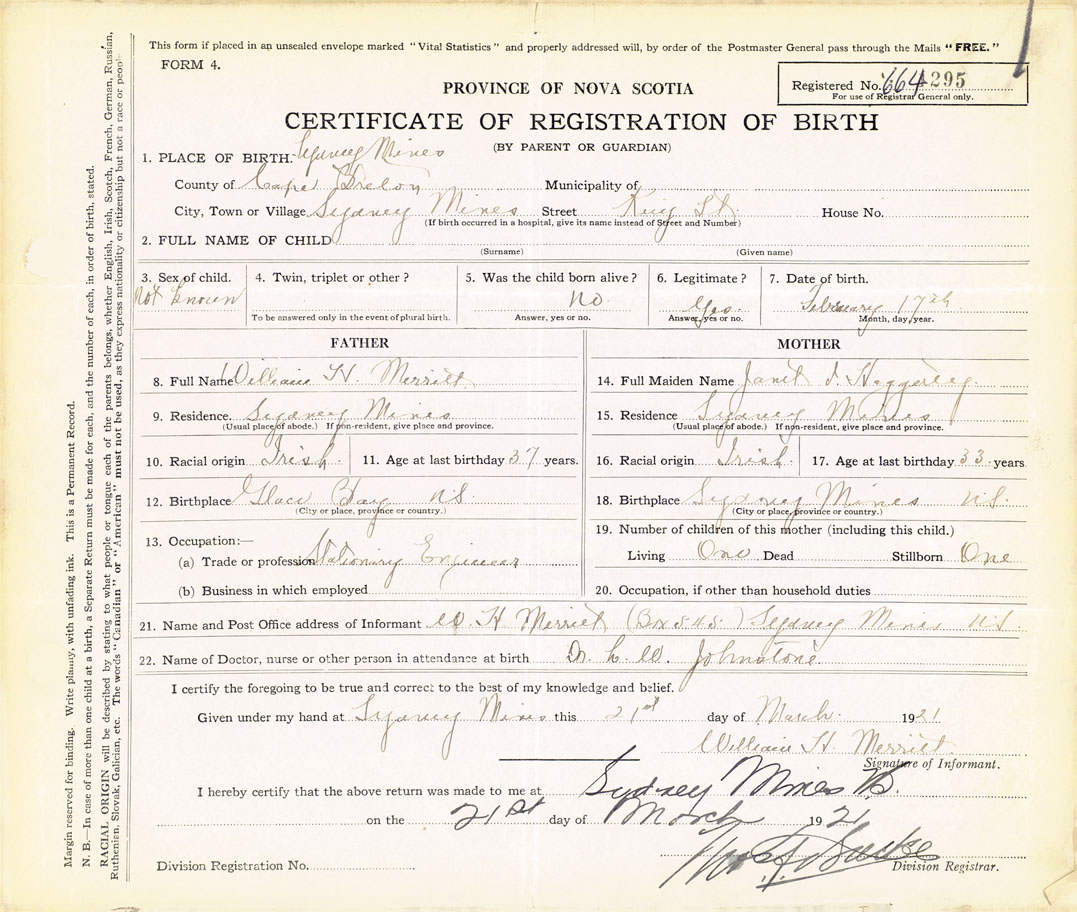 This form if placed in an unsealed envelope marked "Vital Statistics" and properly addressed will, by order of the Postmaster General pass through the Mails "FREE."
FORM 4.
Registered No. 664 295
For use of Registrar General only.
PROVINCE OF NOVA SCOTIA
CERTIFICATE OF REGISTRATION OF BIRTH
(BY PARENT OR GUARDIAN)
1. PLACE OF BIRTH. Sydney Mines
County of Cape Breton Municipality of
City, Town or Village Sydney Mines Street King St House No.
(If birth occurred in a hospital, give its name instead of Street and Number)
2. FULL NAME OF CHILD
(Surname) (Given name)
3. Sex of child. Not known
4. Twin, triplet or other?
To be answered only in the event of plural birth.
5. Was the child born alive? No
Answer, yes or no.
6. Legitimate? Yes
Answer, yes or no.
7. Date of birth. February 17th
Month, day, year.
FATHER
8. Full Name William H. Merritt
9. Residence Sydney Mines
(Usual place of abode.) If non-resident, give place and province.
10. Racial origin Irish 11. Age at last birthday 37 years.
12. Birthplace Glace Bay N.S.
(City or place, province or country.)
13. Occupation:—
(a) Trade or profession Stationary Engineer
(b) Business in which employed
MOTHER
14. Full Maiden Name Janet Haggerty
15. Residence Sydney Mines
(Usual place of abode.) If non-resident, give place and province.
16. Racial origin Irish 17. Age at last birthday 33 years
18. Birthplace Sydney Mines N.S.
(City or place, province or country.)
19. Number of children of this mother (including this child.)
Living One Dead Stillborn One
20. Occupation, if other than household duties
21. Name and Post Office address of Informant W. H. Merritt (Box ) Sydney Mines N.S
22. Name of Doctor, nurse or other person in attendance at birth Dr. L. W. Johnstone
I certify the foregoing to be true and correct to the best of my knowledge and belief.
Given under my hand at Sydney Mines this 21st day of March 1921
William H. Merritt
Signature of Informant.
I hereby certify that the above return was made to me at Sydney Mines
on the 21st day of March 1921
Division Registration No.
Division Registrar.
Margin reserved for binding. Write plainly, with unfading ink. This is a Permanent Record.
N. B.—In case of more than one child at a birth, a Separate Return must be made for each, and the number of each, in order of birth, stated.
RACIAL ORIGIN will be described by stating to what people or tongue each of the parents belongs, whether English, Irish, Scotch, French, German, Russian,
Ruthenian, Slovak, Galician, etc. The words "Canadian" or "American" must not be used, as they express nationality or citizenship but not a race or people